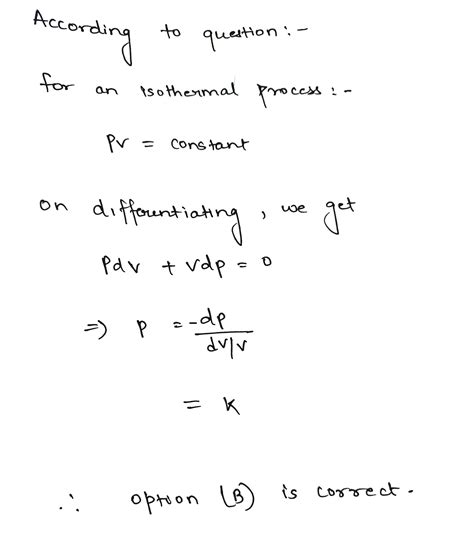 According to question :-
for an isothermal process :-
PV = constant
on differentiating, we get
Pdv + vdp = 0
=> P = -dp / dv/v
= K
∴ option (B) is correct.